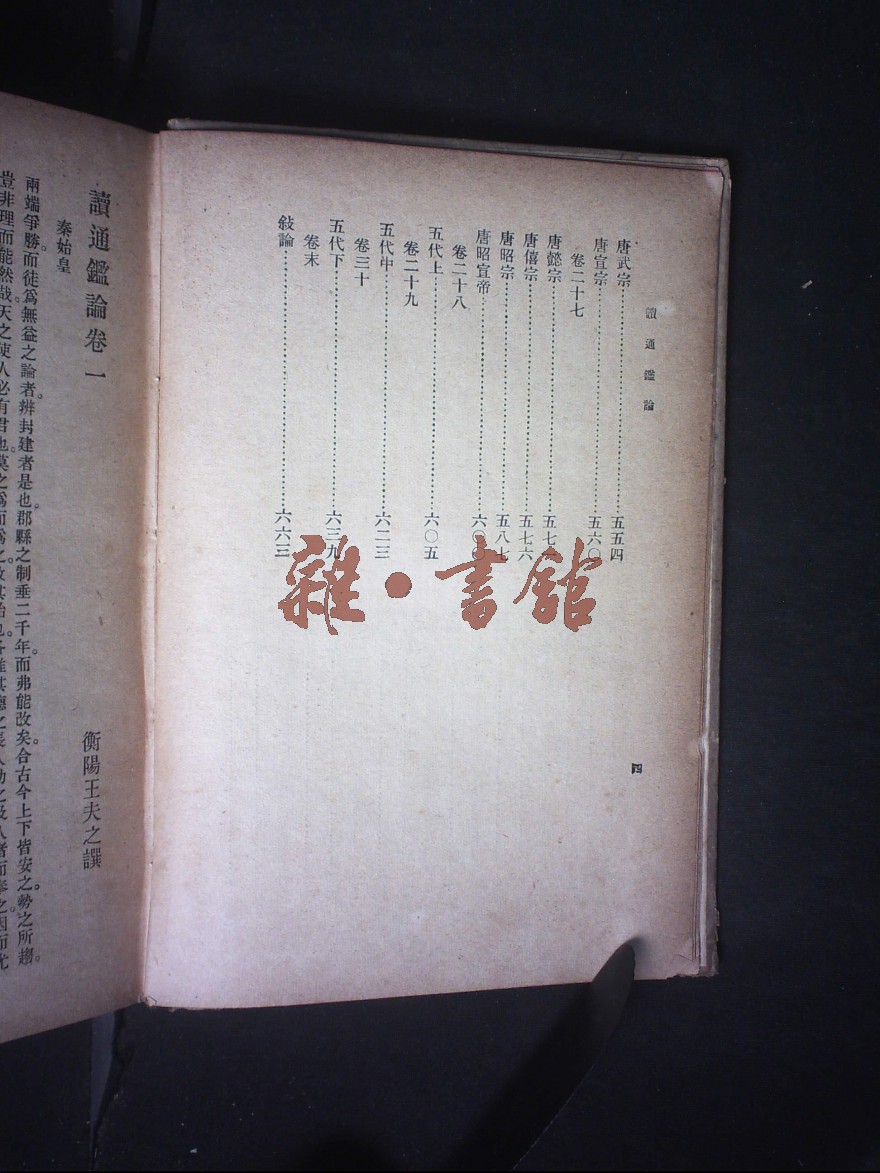 讀通鑑論
唐武宗……五五四
唐宣宗……五六〇
卷二十七
唐懿宗……五七
唐僖宗……五七六
唐昭宗……五八七
唐昭宣帝……六〇
卷二十八
五代上……六〇五
卷二十九
五代中……六二三
卷三十
五代下……六三九
卷末
敍論……六六三
四
雜·書館
讀通鑑論卷一
衡陽王夫之譔
秦始皇
兩端爭勝。而徒爲無益之論者。辨封建者是也。郡縣之制。垂二千年。而弗能改矣。合古今上下皆安之。勢之所趨。
豈非理而能然哉。天之使人必有君也。莫之爲而爲之。故其始也。各推其德之長人功之及人者而奉之。因而尤